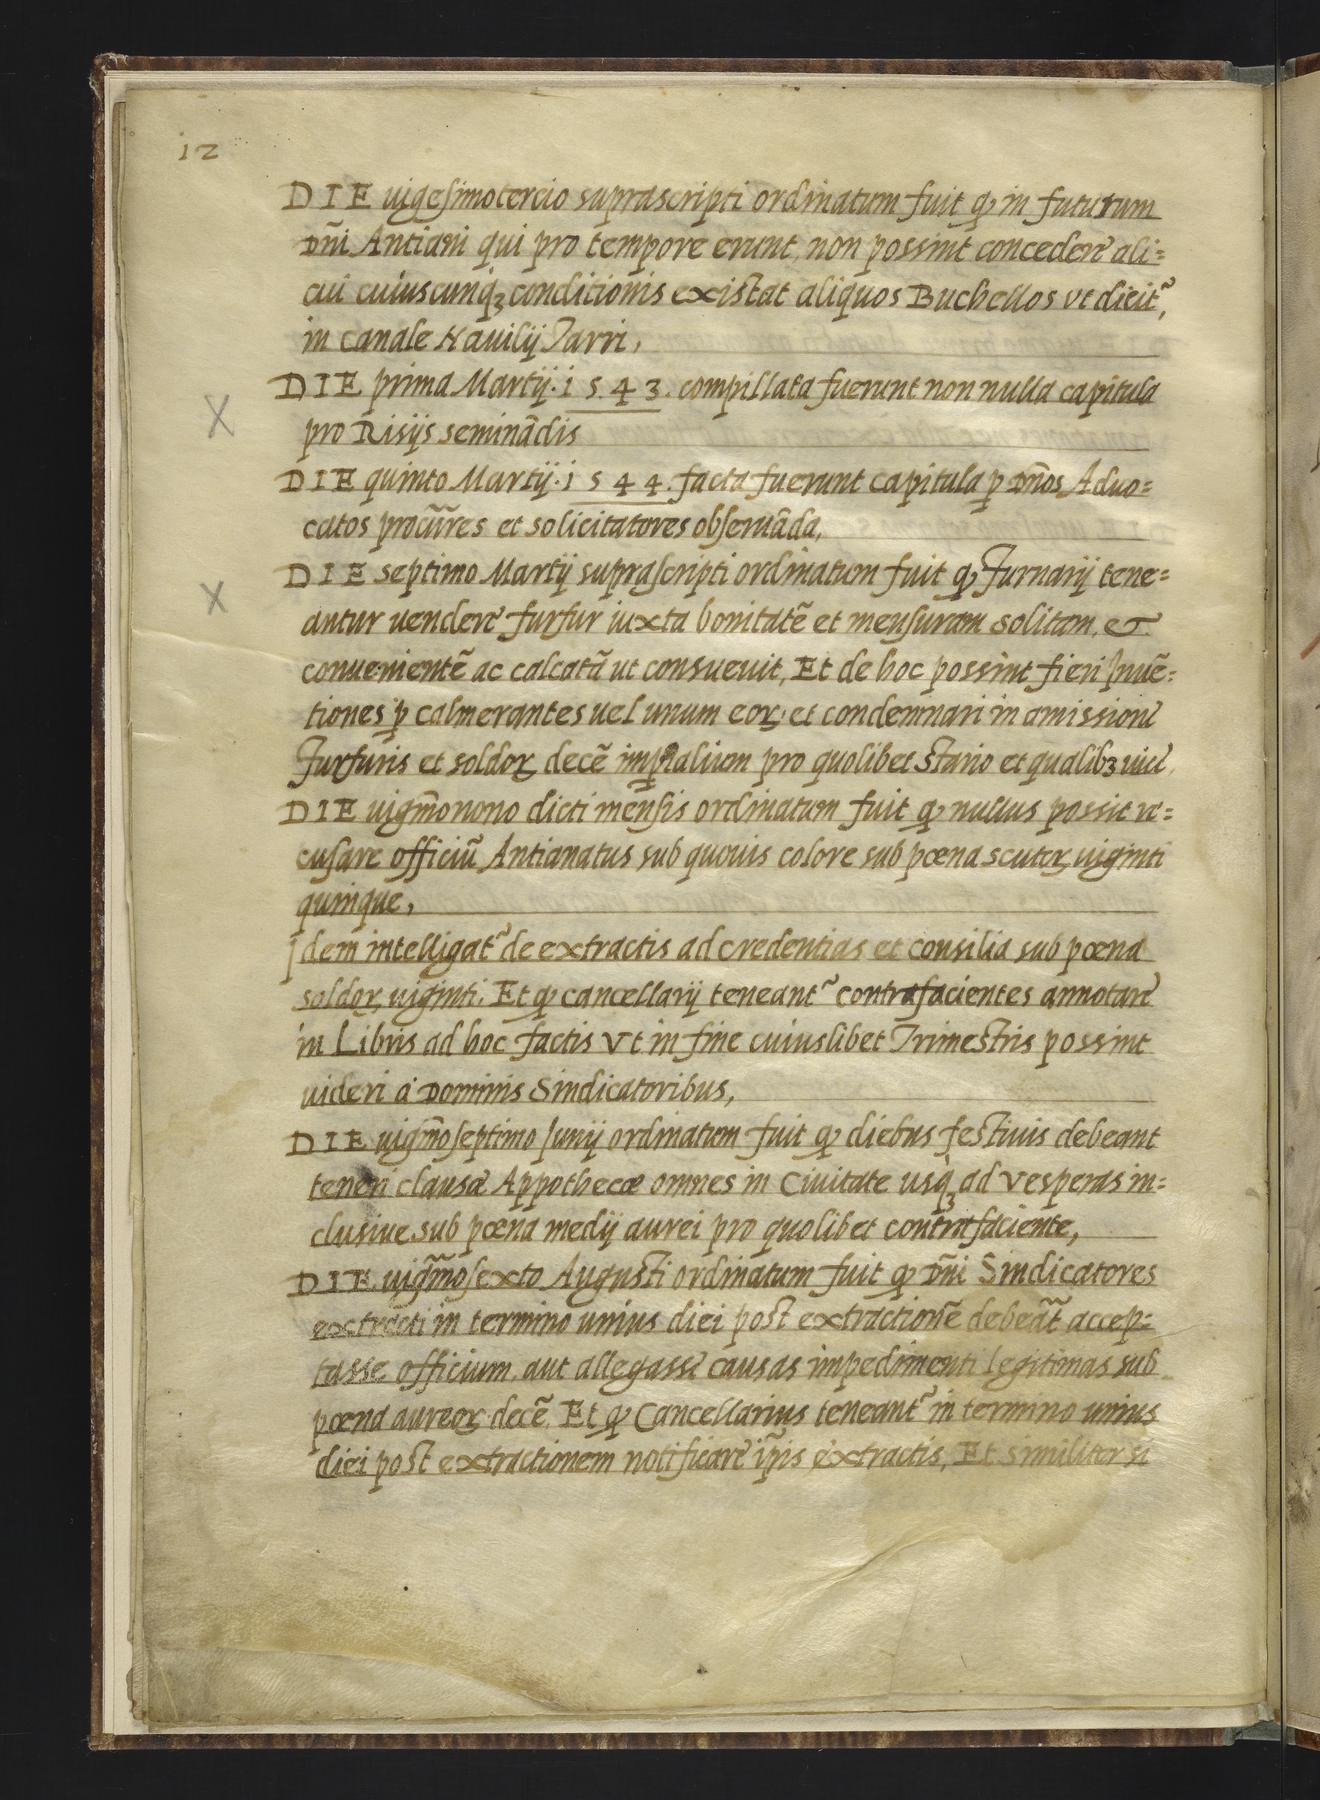 12
DIE uigesimotercio suprascripti ordinatum fuit ꝙ in futurum
Dñi Antiani qui pro tempore erunt, non possint concedere ali=
cui cuiuscunq̨ꝫ conditionis existat aliquos Buchellos vt dicit᷑,
in canale Nauilij Tarri,
DIE prima Martij. i 5 4 3. compillata fuerunt non nulla capitula
pro Risijs seminādis
DIE quinto Martij. i 5 4 4. facta fuerunt capitula ꝑ Dños Aduo=
catos procūres et solicitatores obseruāda,
DIE septimo Martij suprascripti ordinatum fuit ꝙ furnarij tene=
antur uendere furfur iuxta bonitatē et mensuram solitam, &
conuenientē ac calcatū ut consueuit, Et de hoc possint fieri Inuē=
tiones ꝑ calmerantes uel unum eoꝝ, et condemnari in amissione
furfuris et soldoꝝ decē imꝑialium pro quolibet Stario et qualibꝫ uice,
DIE uigm̃onono dicti mensis ordinatum fuit ꝙ nullus possit re=
cusare officiū Antianatus sub quouis colore sub pœna scutoꝝ uiginti
quinque,
Idem intelligat᷑ de extractis ad credentias et consilia sub pœna
soldoꝝ uiginti, Et ꝙ cancellarij teneant᷑ contrafacientes annotare
in Libris ad hoc factis Vt in fine cuiuslibet Trimestris possint
uideri à Dominis Sindicatoribus,
DIE uigm̃oseptimo Iunij ordinatum fuit ꝙ diebus festiuis debeant
teneri clausæ Appothecæ omnes in Ciuitate usq̨ꝫ ad Vesperas in=
clusiue sub pœna medij aurei pro quolibet contrafaciente,
DIE uigm̃osexto Augusti ordinatum fuit ꝙ Dñi Sindicatores
extracti in termino unius diei post extractionē debeāt accep=
tasse officium, aut allegasse causas impedimenti legitimas sub
pœna aureoꝝ decē, Et ꝙ Cancellarius teneant᷑ in termino unius
diei post extractionem notificare ip̄is extractis, Et similiter si